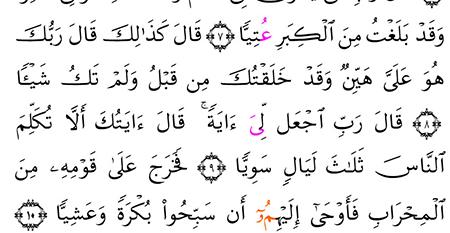 وَقَدْ بَلَغْتُ مِنَ ٱلْكِبَرِ عُتِيًّا ٧ قَالَ كَذَٰلِكَ قَالَ رَبُّكَ
هُوَ عَلَىَّ هَيِّنٌ وَقَدْ خَلَقْتُكَ مِن قَبْلُ وَلَمْ تَكُ شَيْـًٔا
٨ قَالَ رَبِّ ٱجْعَل لِّىَ ءَايَةً ۚ قَالَ ءَايَتُكَ أَلَّا تُكَلِّمَ
ٱلنَّاسَ ثَلَٰثَ لَيَالٍ سَوِيًّا ٩ فَخَرَجَ عَلَىٰ قَوْمِهِۦ مِنَ
ٱلْمِحْرَابِ فَأَوْحَىٰٓ إِلَيْهِمُۥٓ أَن سَبِّحُوا۟ بُكْرَةً وَعَشِيًّا ١٠